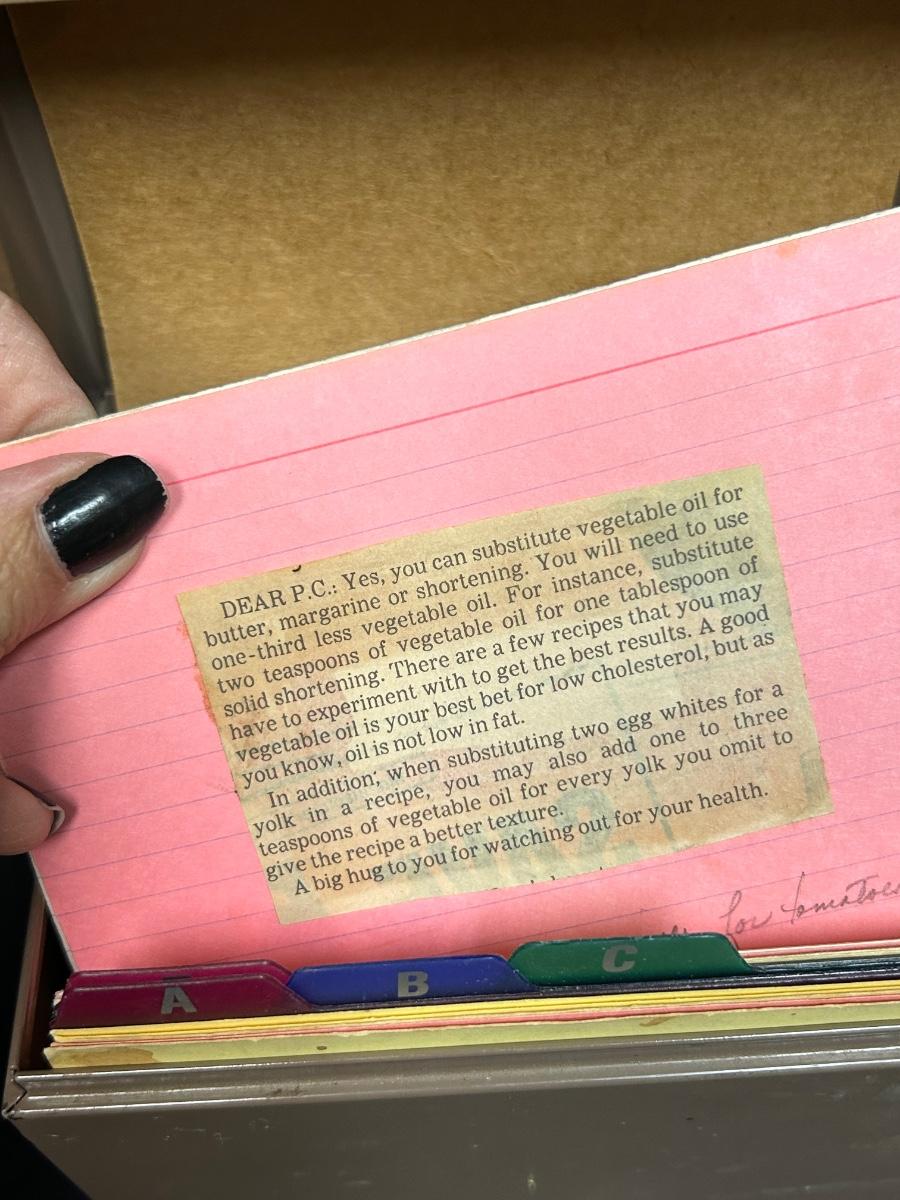 DEAR P.C.: Yes, you can substitute vegetable oil for
butter, margarine or shortening. You will need to use
one-third less vegetable oil. For instance, substitute
two teaspoons of vegetable oil for one tablespoon of
solid shortening. There are a few recipes that you may
have to experiment with to get the best results. A good
vegetable oil is your best bet for low cholesterol, but as
you know, oil is not low in fat.
In addition, when substituting two egg whites for a
yolk in a recipe, you may also add one to three
teaspoons of vegetable oil for every yolk you omit to
give the recipe a better texture.
A big hug to you for watching out for your health.
for tomatoes
A
B
C